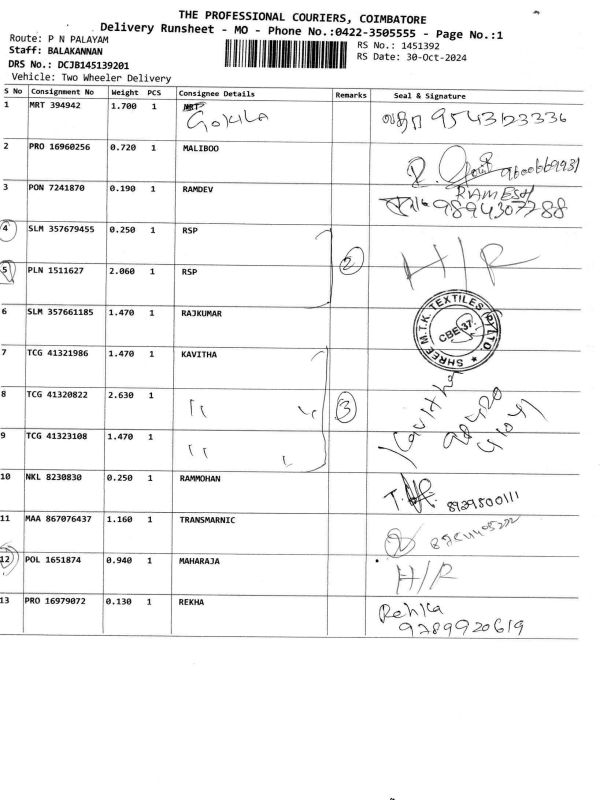 THE PROFESSIONAL COURIERS, COIMBATORE
Delivery Runsheet - MO - Phone No.:0422-3505555 - Page No.:1
Route: P N PALAYAM
RS No.: 1451392
Staff: BALAKANNAN
RS Date: 30-Oct-2024
DRS No.: DCJB145139201
Vehicle: Two Wheeler Delivery
S No Consignment No Weight PCS Consignee Details Remarks Seal & Signature
1 MRT 394942 1.700 1 Gokila லதா 9543123336
2 PRO 16960256 0.720 1 MALIBOO 9600669931
3 PON 7241870 0.190 1 RAMDEV RAMESH 9894307788
4 SLM 357679455 0.250 1 RSP
5 PLN 1511627 2.060 1 RSP 2 H/R
6 SLM 357661185 1.470 1 RAJKUMAR SHREE M.T.K. TEXTILES (P) LTD CBE 37.
7 TCG 41321986 1.470 1 KAVITHA
8 TCG 41320822 2.630 1 " " 3 Kavitha
9 TCG 41323108 1.470 1 " "
10 NKL 8230830 0.250 1 RAMMOHAN 8939500111
11 MAA 867076437 1.160 1 TRANSMARNIC
12 POL 1651874 0.940 1 MAHARAJA H/R
13 PRO 16979072 0.130 1 REKHA Rehka
9789920619